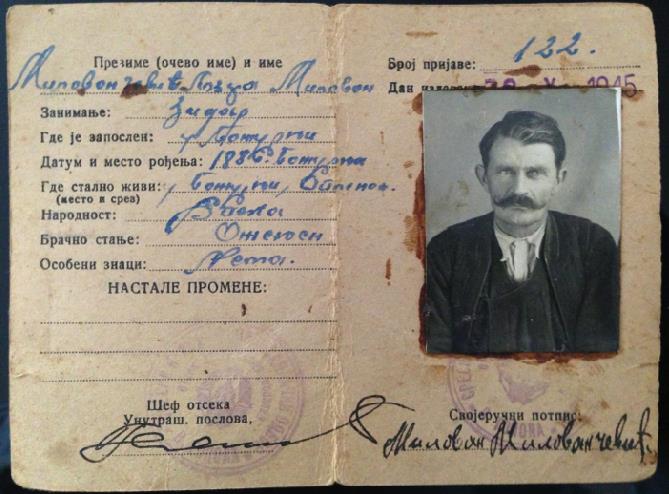 Презиме (очево име) и име
Миловончевић Миловон
Занимање: Зидор
Где је запослен: у Божурњи
Датум и место рођења: 1886. Божурња
Где стално живи: у Божурњи,
(место и срез)
Народност:
Брачно стање: Ожењен
Особени знаци: Нема.
НАСТАЛЕ ПРОМЕНЕ:
Шеф отсека
Унутраш. послова,
Број пријаве: 122.
Дан 1945
Својеручни потпис:
Миловон Миловончевић